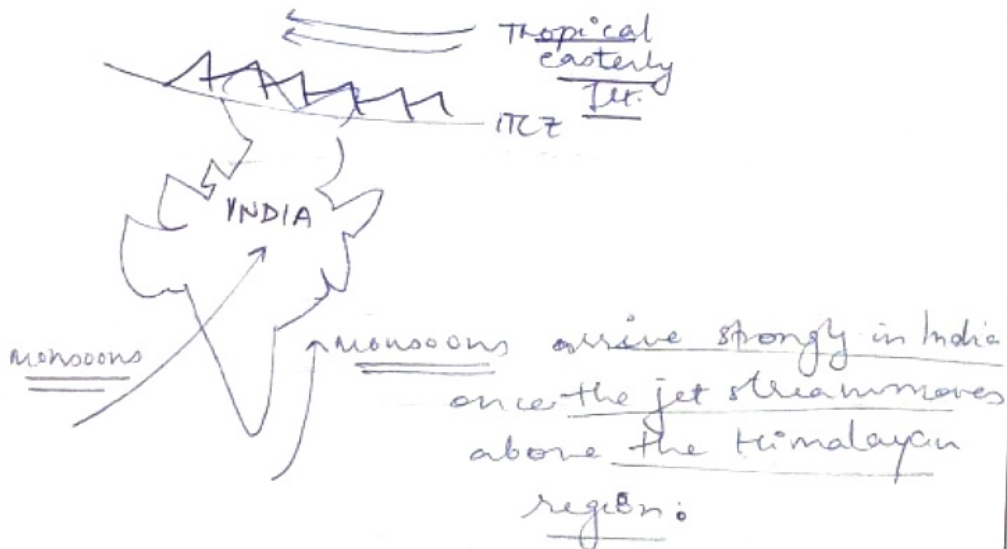 Tropical
easterly
Jet.
ITCZ
INDIA
monsoons
monsoons arrive strongly in India
once the jet stream moves
above the Himalayan
region.